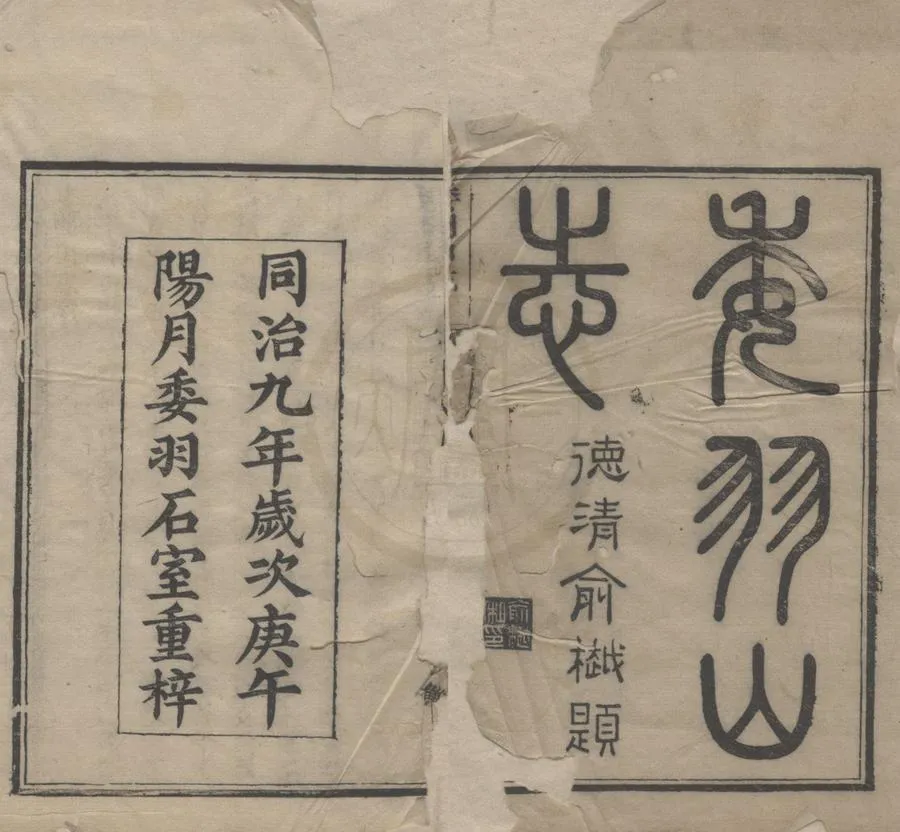 委羽山
志
德清俞樾題
同治九年歲次庚午
陽月委羽石室重梓